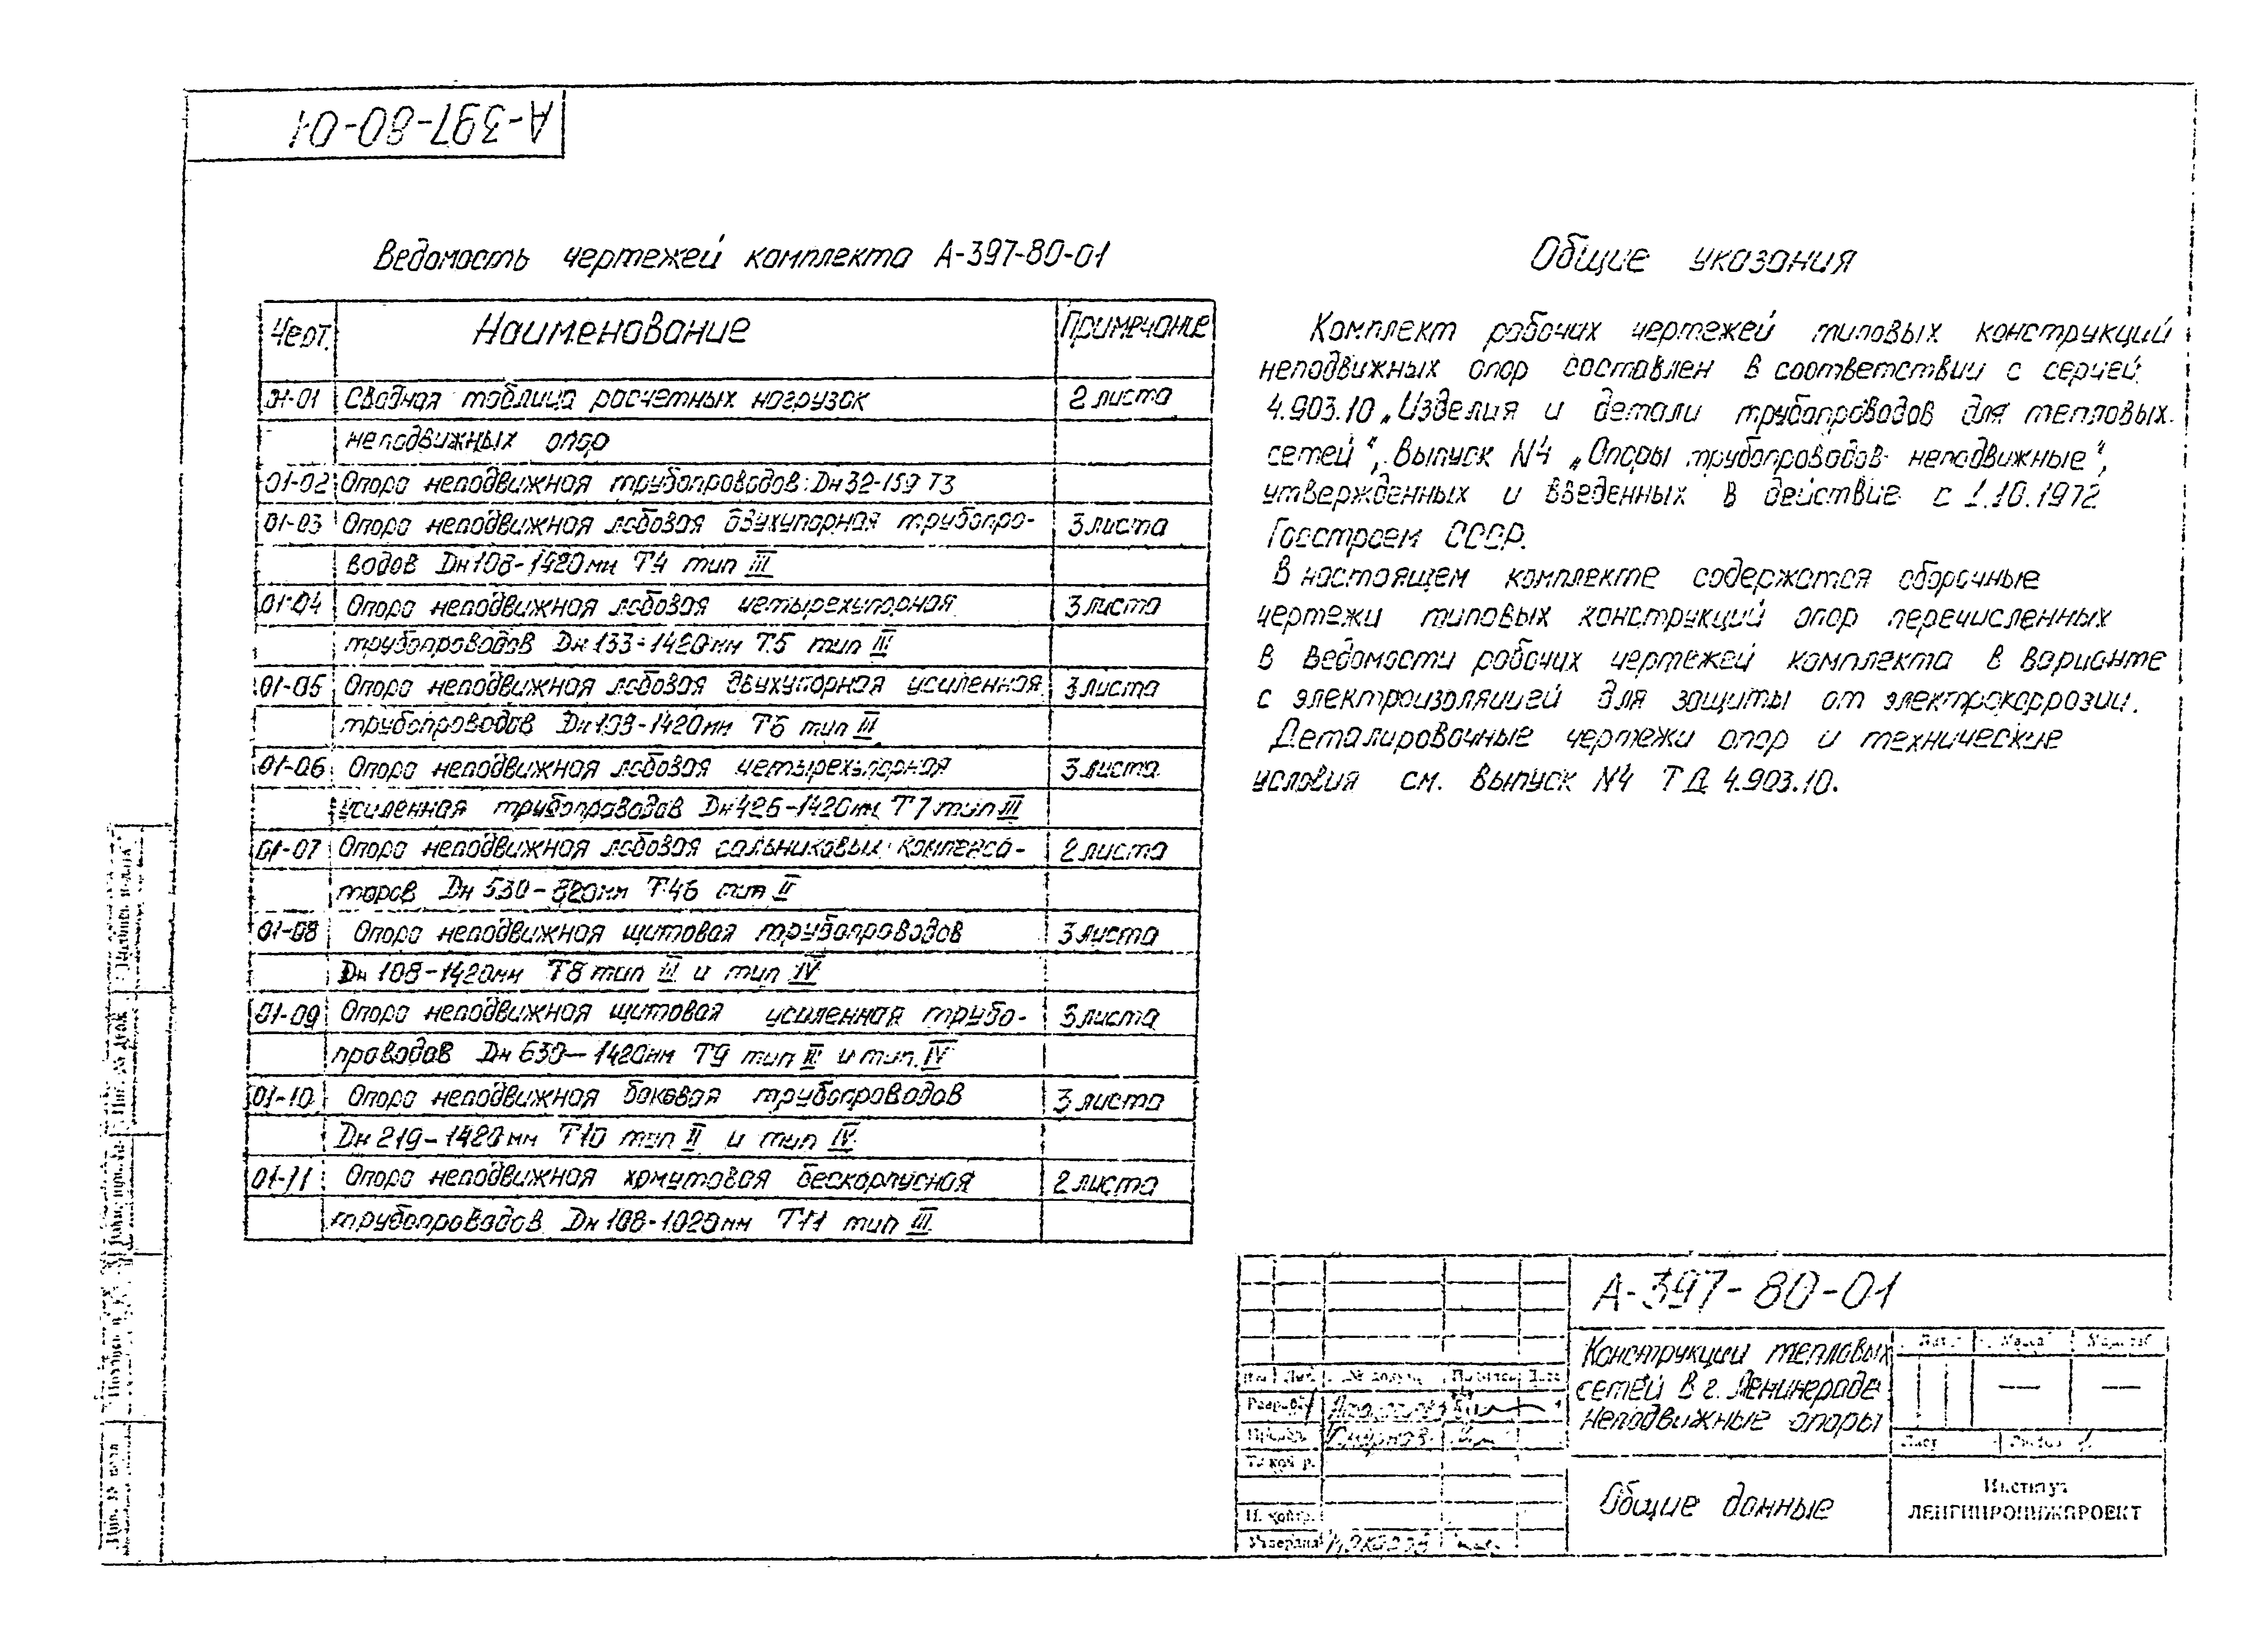 А-397-80-01
Ведомость чертежей комплекта А-397-80-01
Черт. Наименование Примечание
01-01 Сводная таблица расчетных нагрузок 2 листа
неподвижных опор
01-02 Опора неподвижная трубопроводов Дн 32-159 Т3
01-03 Опора неподвижная лобовая двухупорная трубопро- 3 листа
водов Дн 108-1420мм Т4 тип III
01-04 Опора неподвижная лобовая четырехупорная 3 листа
трубопроводов Дн 133-1420мм Т5 тип III
01-05 Опора неподвижная лобовая двухупорная усиленная 3 листа
трубопроводов Дн 108-1420мм Т6 тип III
01-06 Опора неподвижная лобовая четырехупорная 3 листа
усиленная трубопроводов Дн 426-1420мм Т7 тип III
01-07 Опора неподвижная лобовая сальниковых компенса- 2 листа
торов Дн 530-820мм Т46 тип II
01-08 Опора неподвижная щитовая трубопроводов 3 листа
Дн 108-1420мм Т8 тип III и тип IV
01-09 Опора неподвижная щитовая усиленная трубо- 3 листа
проводов Дн 630-1420мм Т9 тип III и тип IV
01-10 Опора неподвижная боковая трубопроводов 3 листа
Дн 219-1420мм Т10 тип II и тип IV
01-11 Опора неподвижная хомутовая бескорпусная 2 листа
трубопроводов Дн 108-1020мм Т11 тип III
Общие указания
Комплект рабочих чертежей типовых конструкций
неподвижных опор составлен в соответствии с серией
4.903.10 „Изделия и детали трубопроводов для тепловых
сетей“, Выпуск N4 „Опоры трубопроводов неподвижные“,
утвержденных и введенных в действие с 1.10.1972
Госстроем СССР.
В настоящем комплекте содержатся сборочные
чертежи типовых конструкций опор перечисленных
в ведомости рабочих чертежей комплекта в варианте
с электроизоляцией для защиты от электрокоррозии.
Деталировочные чертежи опор и технические
условия см. выпуск N4 ТД 4.903.10.
А-397-80-01
Конструкции тепловых
сетей в г. Ленинграде
Неподвижные опоры
Масса Масштаб
— —
Лист Листов
Общие данные
Институт
ЛЕНГИПРОИНЖПРОЕКТ
Разраб.
Т. контр.
Н. контр.